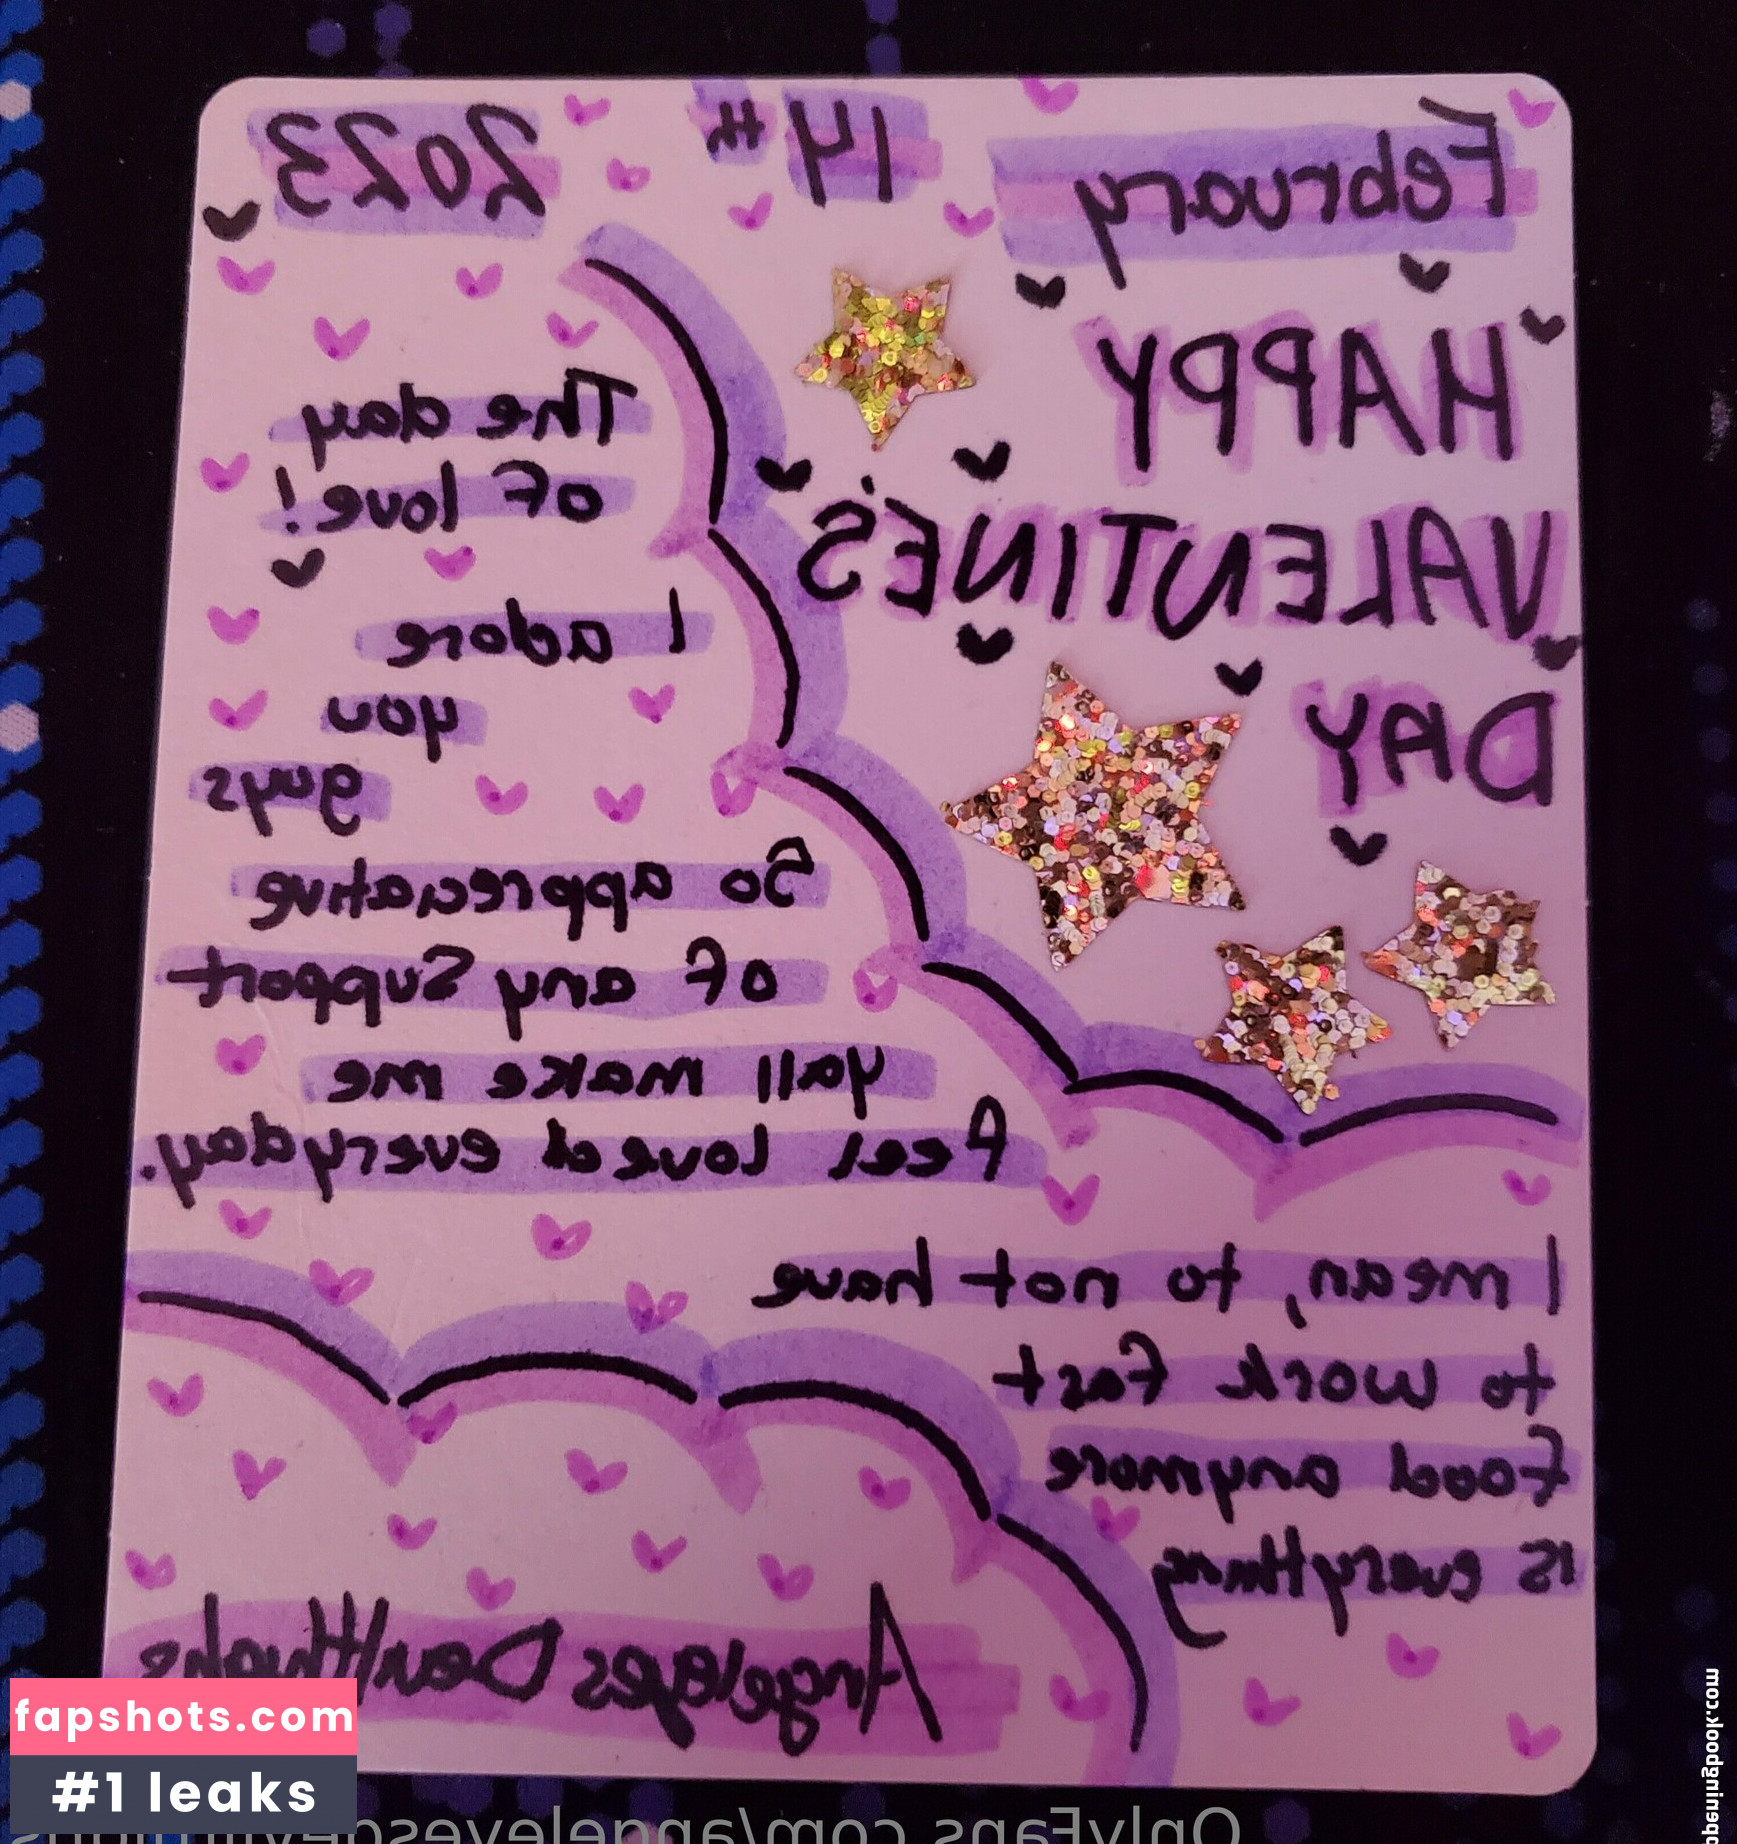 February 14th 2023
HAPPY
VALENTINE'S
DAY
The day
of love!
I adore
you
guys
So appreciative
of any Support
yall make me
feel loved everyday.
I mean, to not have
to work fast
food anymore
is everything
Angeleyes Devilthighs
fapshots.com
#1 leaks